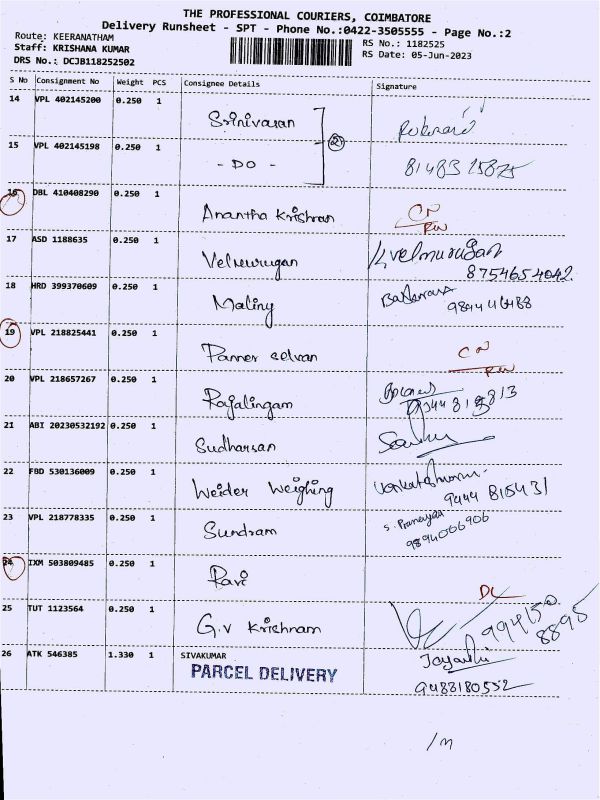 THE PROFESSIONAL COURIERS, COIMBATORE
Delivery Runsheet - SPT - Phone No.:0422-3505555 - Page No.:2
Route: KEERANATHAM
RS No.: 1182525
Staff: KRISHANA KUMAR
RS Date: 05-Jun-2023
DRS No.: DCJB118252502
S No Consignment No Weight PCS Consignee Details Signature
14 VPL 402145200 0.250 1 Srinivasan
15 VPL 402145198 0.250 1 - DO - 2
16 DBL 410408290 0.250 1 Anantha Krishnan CN
17 ASD 1188635 0.250 1 Velmurugan K velmurugan
8754654042
18 HRD 399370609 0.250 1 Maliny
19 VPL 218825441 0.250 1 Panner selvan CN
20 VPL 218657267 0.250 1 Rajalingam
21 ABI 20230532192 0.250 1 Sudharsan
22 FBD 530136009 0.250 1 Weider Weighing
9444 815431
23 VPL 218778335 0.250 1 Sundram
9894066906
24 IXM 503809485 0.250 1 Ravi DL
25 TUT 1123564 0.250 1 G.V Krishnam
99415 0
8895
26 ATK 546385 1.330 1 SIVAKUMAR
PARCEL DELIVERY
9483180552